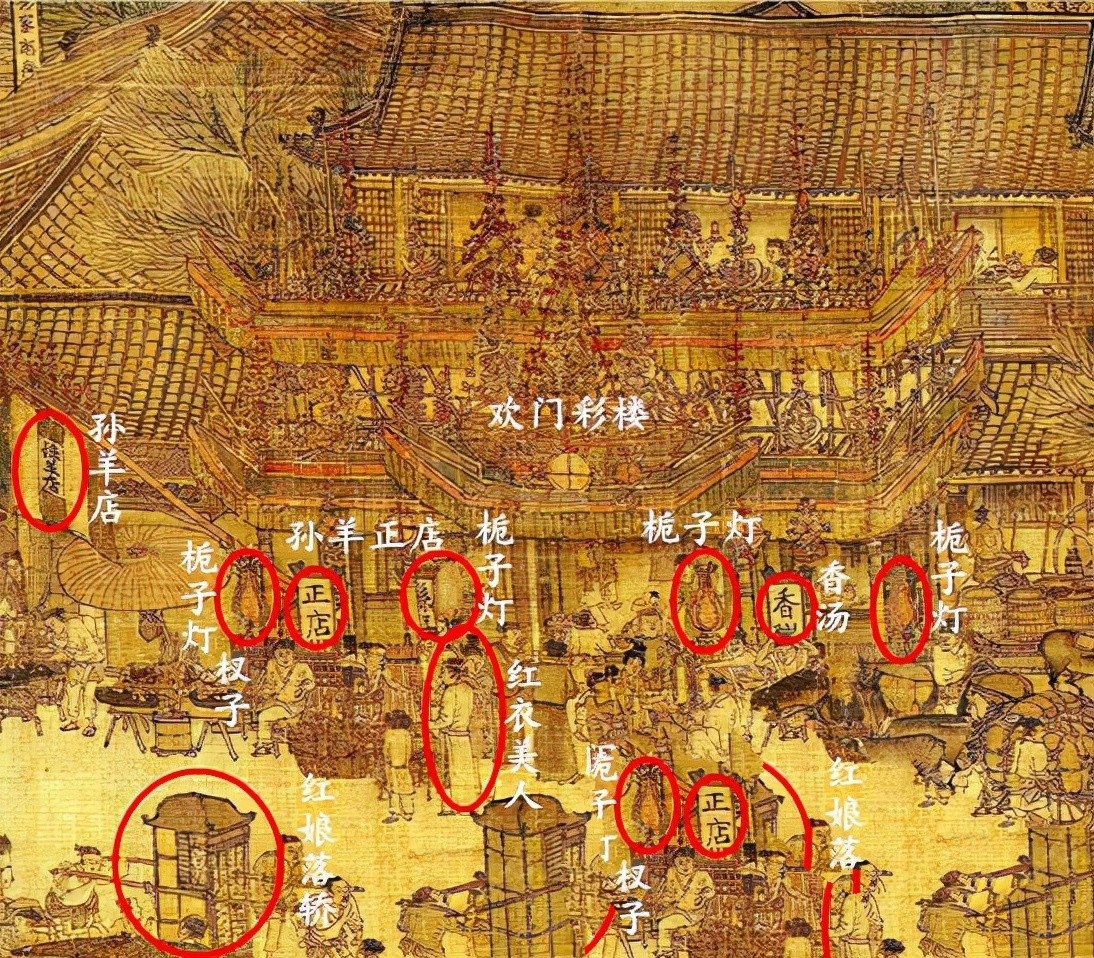 孙羊店
欢门彩楼
孙羊正店
栀子灯
栀子灯
栀子灯
栀子灯
正店
香
香汤
杈子
红衣美人
红娘落轿
正店
杈子
红娘落